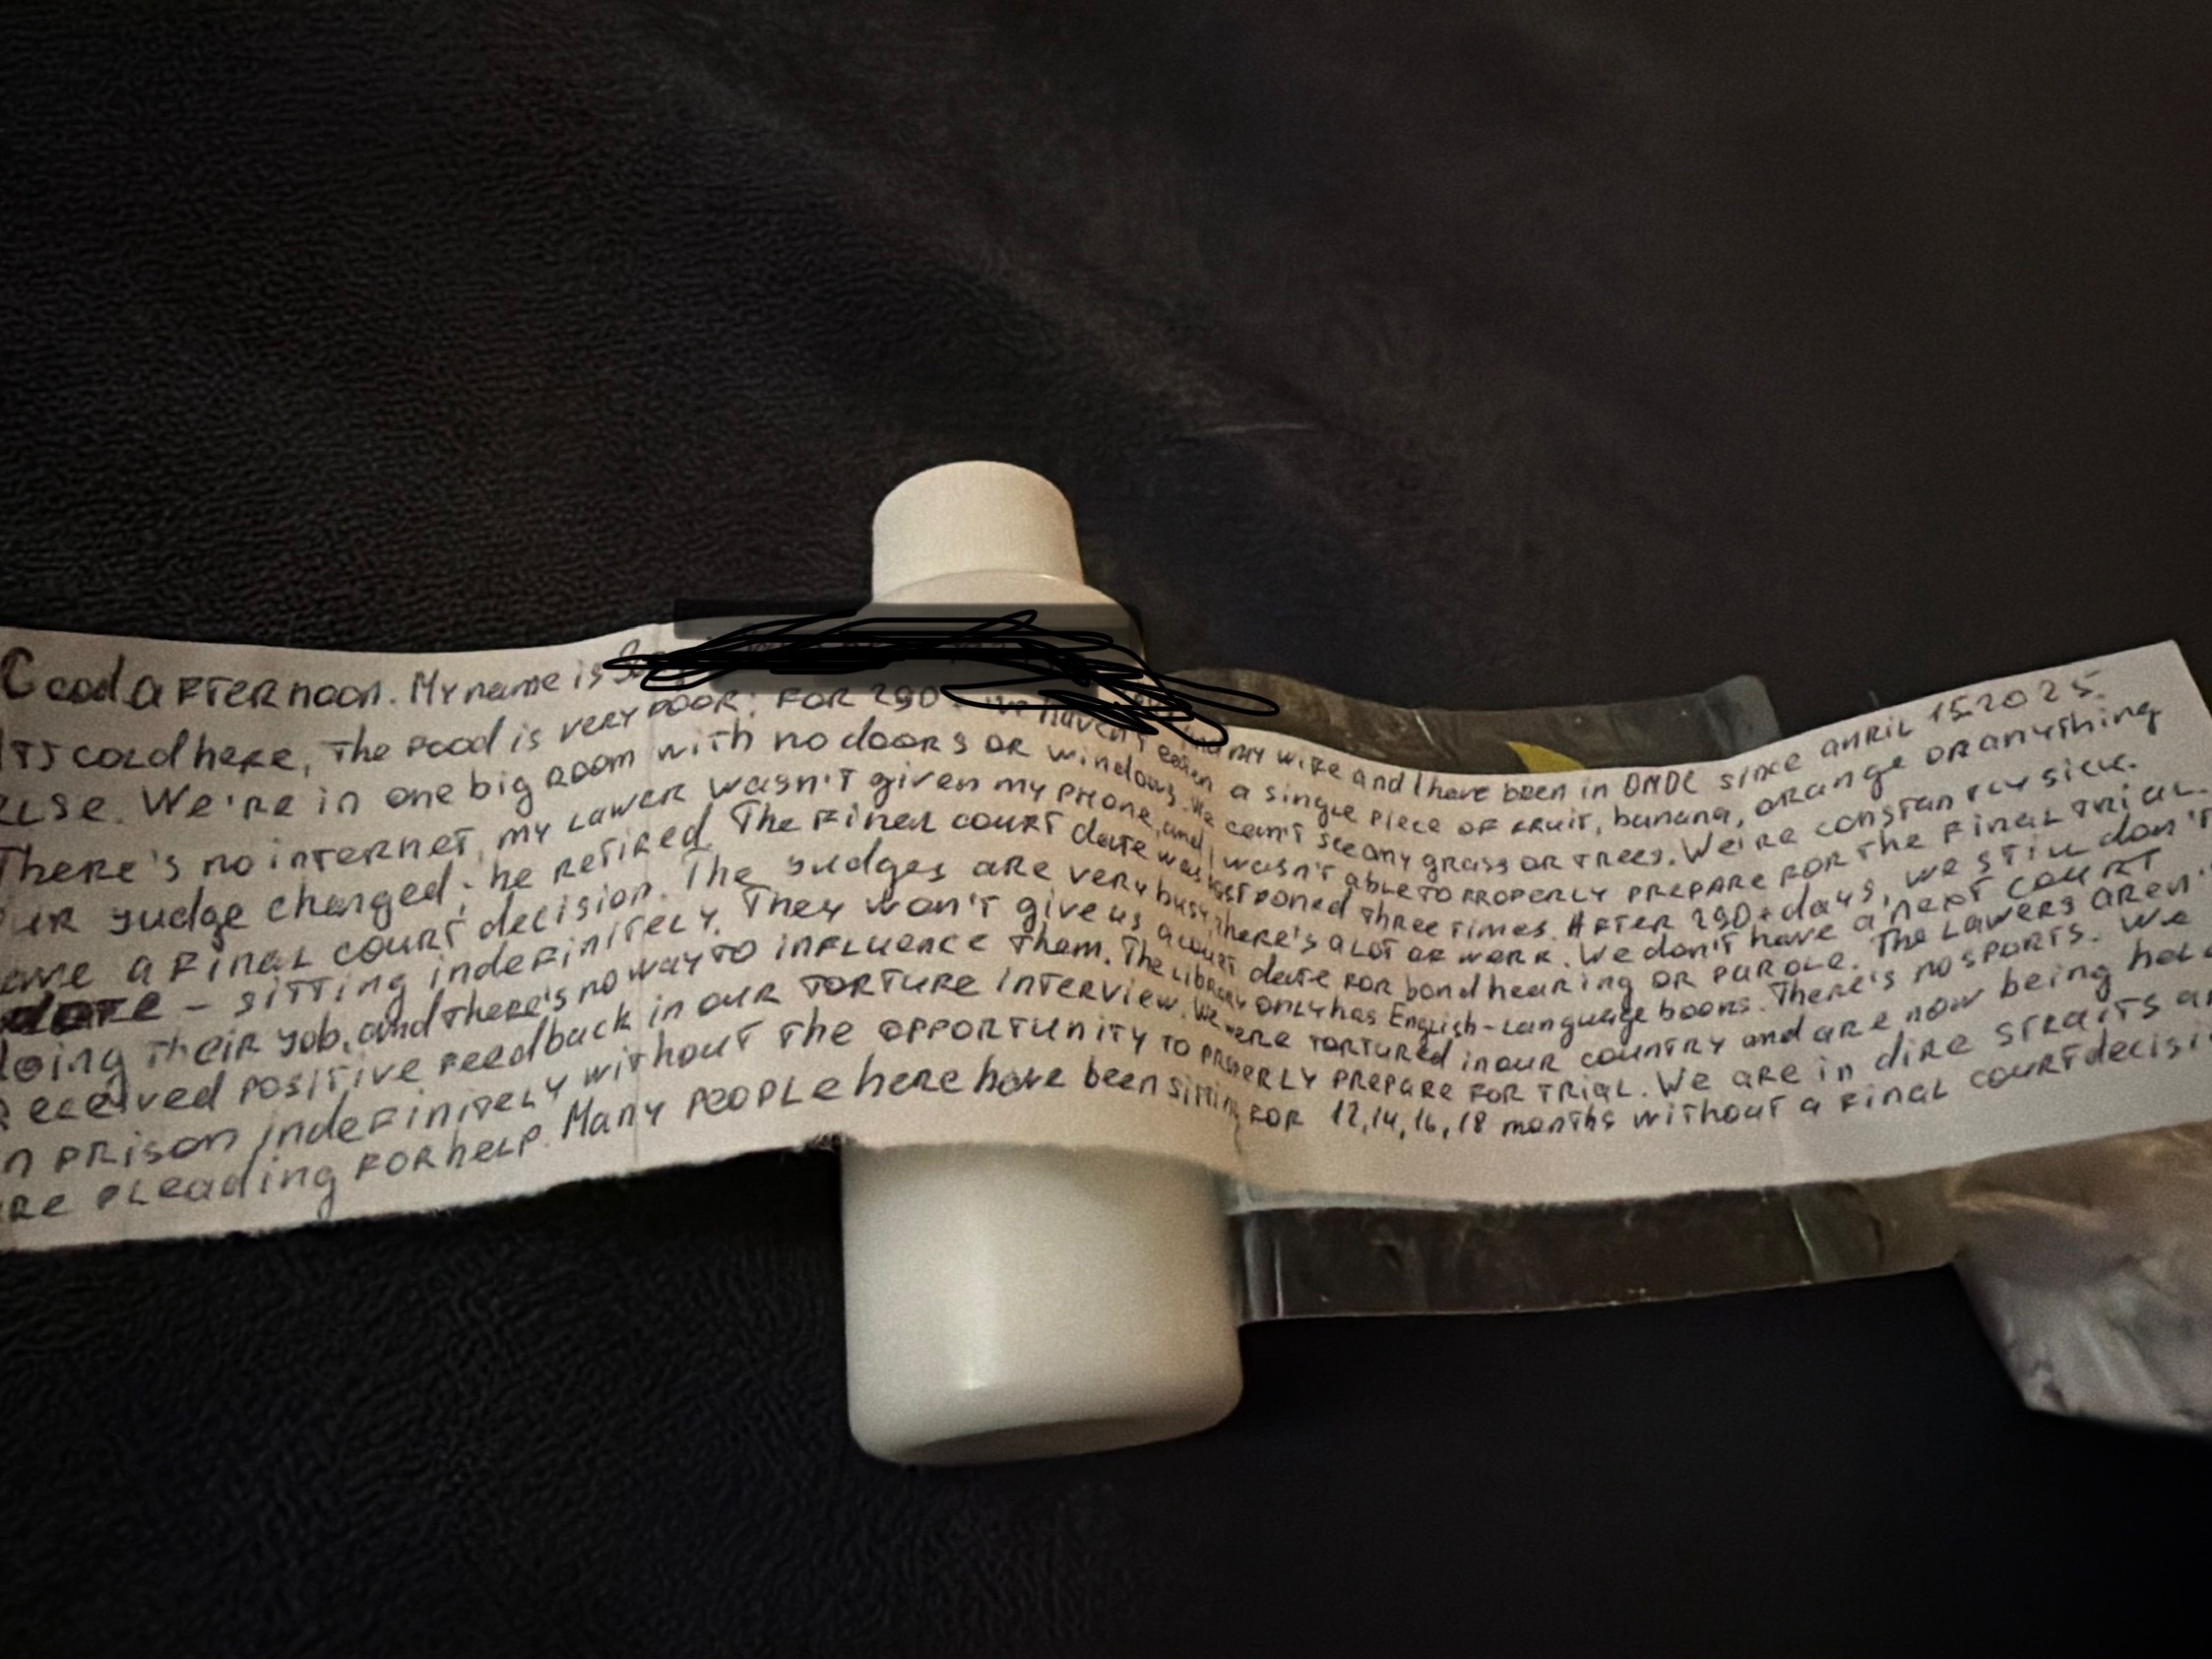 Good afternoon. My name is and my wife and I have been in OMDC since april 15 2025.
ITs cold here, The food is very poor: For 290 we haven't eaten a single piece of fruit, banana, orange or anything
else. We're in one big room with no doors or windows. We can't see any grass or trees. We're constantly sick.
There's no internet, my lawer wasn't given my phone, and I wasn't able to properly prepare for the final trial.
ur judge changed; he retired. The final court date was postponed three times. After 290+ days, we still don't
ave a final court decision. The judges are very busy, there's a lot of werk. We don't have a next court
date - sitting indefinitely. They won't give us a court date for bond hearing or parole. The lawers aren't
doing their job, and there's no way to influence them. The library only has English-language books. There's no sports. We
received positive feedback in our torture interview. We were tortured in our country and are now being hel
n prison indefinitely without the opportunity to properly prepare for trial. We are in dire straits a
re pleading for help. Many people here have been sitting for 12,14,16,18 months without a final court decisi